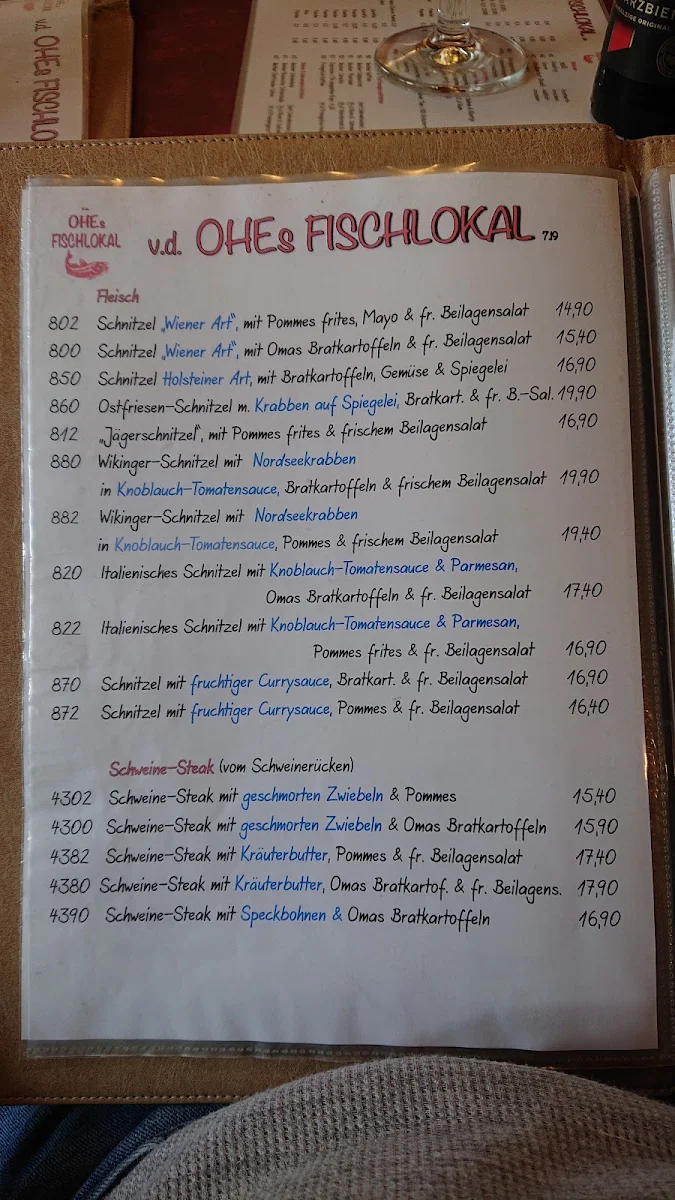 v.d. OHEs FISCHLO
ÖHEs
FISCHLOKAL
v.d. OHEs FISCHLOKAL 7.19
Fleisch
802 Schnitzel „Wiener Art“, mit Pommes frites, Mayo & fr. Beilagensalat 14,90
800 Schnitzel „Wiener Art“, mit Omas Bratkartoffeln & fr. Beilagensalat 15,40
850 Schnitzel Holsteiner Art, mit Bratkartoffeln, Gemüse & Spiegelei 16,90
860 Ostfriesen-Schnitzel m. Krabben auf Spiegelei, Bratkart. & fr. B.-Sal. 19,90
812 „Jägerschnitzel“, mit Pommes frites & frischem Beilagensalat 16,90
880 Wikinger-Schnitzel mit Nordseekrabben
in Knoblauch-Tomatensauce, Bratkartoffeln & frischem Beilagensalat 19,90
882 Wikinger-Schnitzel mit Nordseekrabben
in Knoblauch-Tomatensauce, Pommes & frischem Beilagensalat 19,40
820 Italienisches Schnitzel mit Knoblauch-Tomatensauce & Parmesan,
Omas Bratkartoffeln & fr. Beilagensalat 17,40
822 Italienisches Schnitzel mit Knoblauch-Tomatensauce & Parmesan,
Pommes frites & fr. Beilagensalat 16,90
870 Schnitzel mit fruchtiger Currysauce, Bratkart. & fr. Beilagensalat 16,90
872 Schnitzel mit fruchtiger Currysauce, Pommes & fr. Beilagensalat 16,40
Schweine-Steak (vom Schweinerücken)
4302 Schweine-Steak mit geschmorten Zwiebeln & Pommes 15,40
4300 Schweine-Steak mit geschmorten Zwiebeln & Omas Bratkartoffeln 15,90
4382 Schweine-Steak mit Kräuterbutter, Pommes & fr. Beilagensalat 17,40
4380 Schweine-Steak mit Kräuterbutter, Omas Bratkartof. & fr. Beilagens. 17,90
4390 Schweine-Steak mit Speckbohnen & Omas Bratkartoffeln 16,90